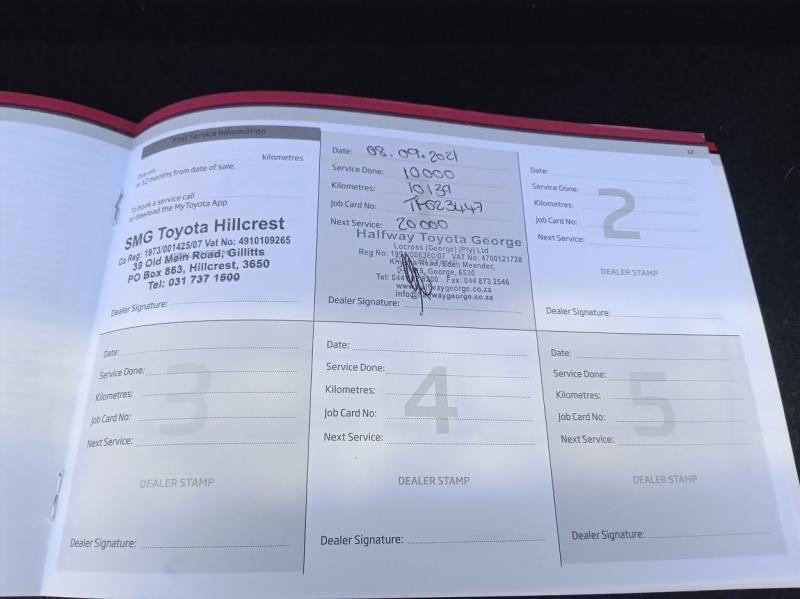 12
First Service Information
Due on kilometres
or 12 months from date of sale.
To book a service call
or download the MyToyota App
SMG Toyota Hillcrest
Co Reg: 1973/001425/07 Vat No: 4910109265
39 Old Main Road, Gillitts
PO Box 853, Hillcrest, 3650
Tel: 031 737 1600
Dealer Signature:
Date: 08.09.2021
Service Done: 10000
Kilometres: 10139
Job Card No:
Next Service: 20000
Halfway Toyota George
Locross (George) (Pty) Ltd
Reg No: VAT No: 4700121728
Road, Eden Meander,
George, 6530
Tel: 044 Fax: 044 873 2546
Dealer Signature:
Date:
Service Done:
Kilometres:
Job Card No:
Next Service:
2
DEALER STAMP
Dealer Signature:
Date:
Service Done:
Kilometres:
Job Card No:
Next Service:
3
DEALER STAMP
Dealer Signature:
Date:
Service Done:
Kilometres:
Job Card No:
Next Service:
4
DEALER STAMP
Dealer Signature:
Date:
Service Done:
Kilometres:
Job Card No:
Next Service:
5
DEALER STAMP
Dealer Signature: